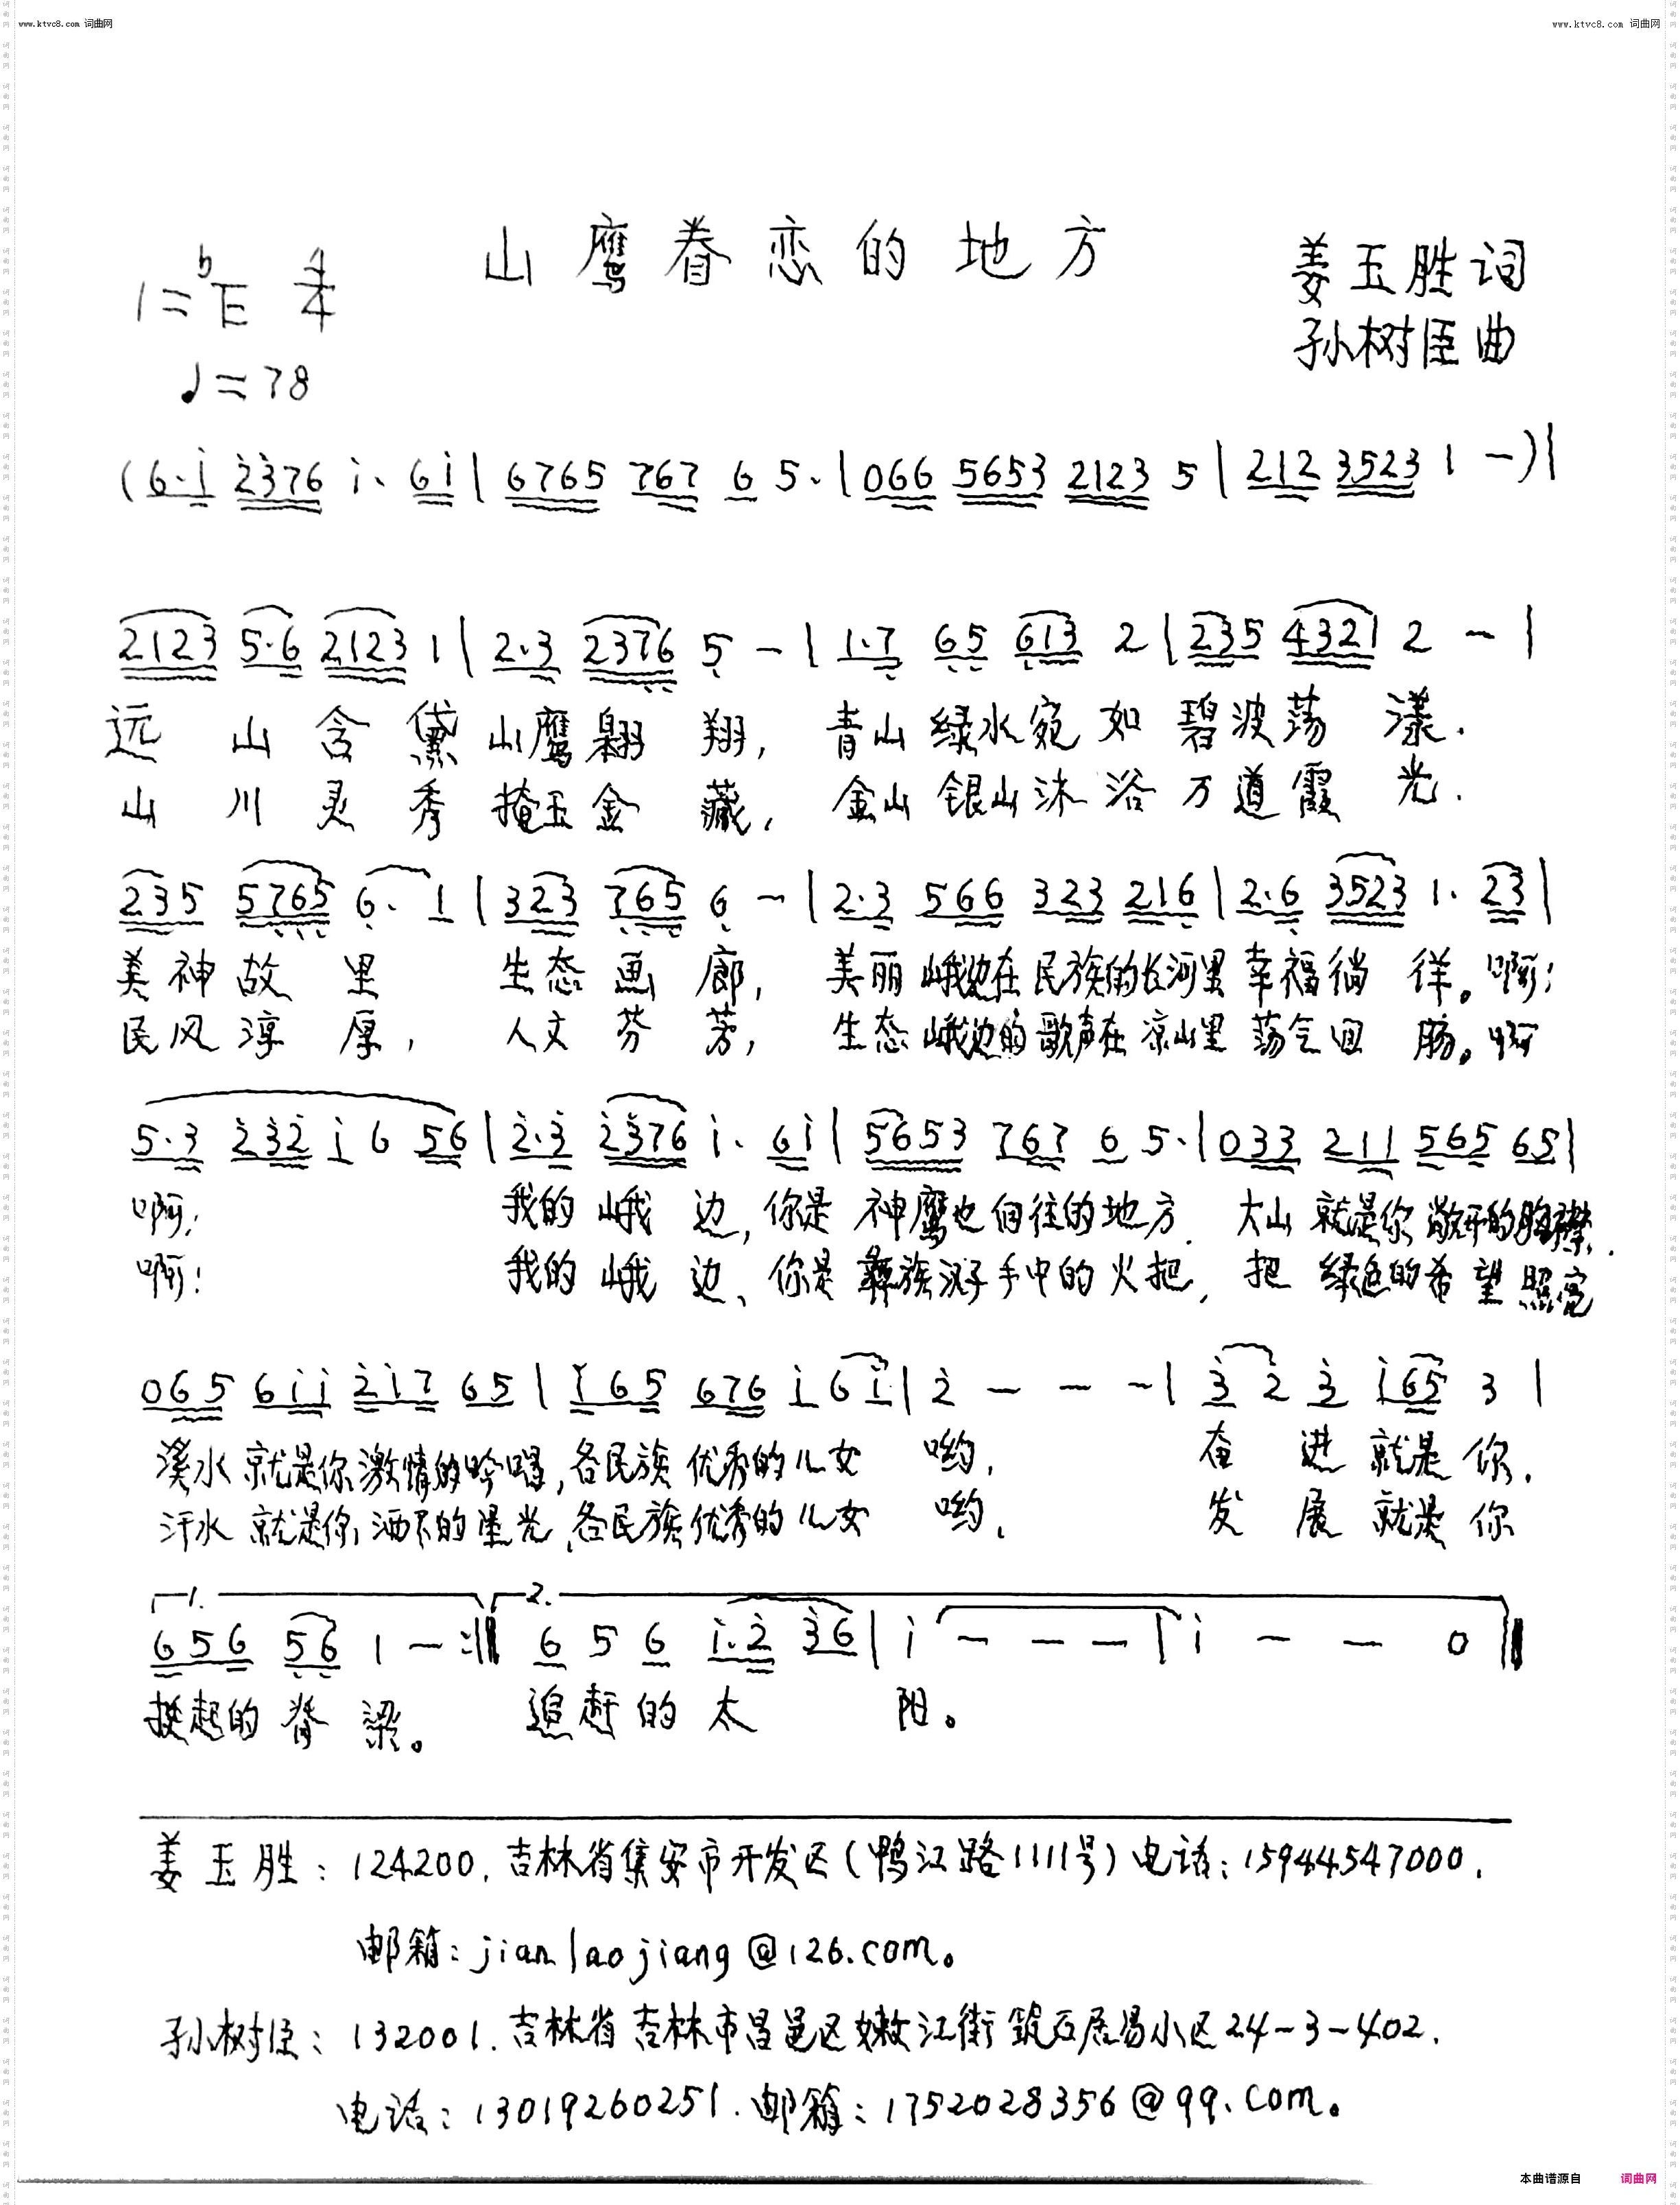 www.ktvc8.com 词曲网
www.ktvc8.com 词曲网
山鹰眷恋的地方
1=bE 4/4
♩=78
姜玉胜词
孙树臣曲
(6·i 2376 i· 6i | 6765 767 6 5· | 066 5653 2123 5 | 212 3523 1 -) |
2123 5·6 2123 1 | 2·3 2376 5 - | 1·7 65 613 2 | 235 4321 2 - |
远山含黛山鹰翱翔,青山绿水宛如碧波荡漾.
山川灵秀掩玉金藏,金山银山沐浴万道霞光.
235 5765 6· 1 | 323 765 6 - | 2·3 566 323 216 | 2·6 3523 1· 23 |
美神故里 生态画廊,美丽峨边在民族的长河里幸福徜徉。啊!
民风淳厚,人文芬芳,生态峨边的歌声在凉山里荡气回肠。啊
5·3 232 i 6 56 | 2·3 2376 i· 6i | 5653 767 6 5· | 033 211 565 65 |
啊! 我的峨边,你是神鹰也向往的地方.大山就是你敞开的胸襟.
啊! 我的峨边、你是彝族汉子手中的火把,把绿色的希望照亮
065 6ii 2i7 65 | i 65 676 i 6i | 2 - - - | 3 2 3 i65 3 |
溪水就是你激情的吟唱,各民族优秀的儿女哟,奋进就是你.
汗水就是你洒下的星光,各民族优秀的儿女哟,发展就是你
1. 2.
656 56 1 - :‖ 6 5 6 i·2 36 | i - - - | i - - 0 ‖
挺起的脊梁。 追赶的太阳。
姜玉胜:124200.吉林省集安市开发区(鸭江路1111号)电话:15944547000.
邮箱:jianlaojiang@126.com。
孙树臣:132001.吉林省吉林市昌邑区嫩江街筑石居易小区24-3-402.
电话:13019260251.邮箱:1752028356@qq.com。
本曲谱源自 词曲网